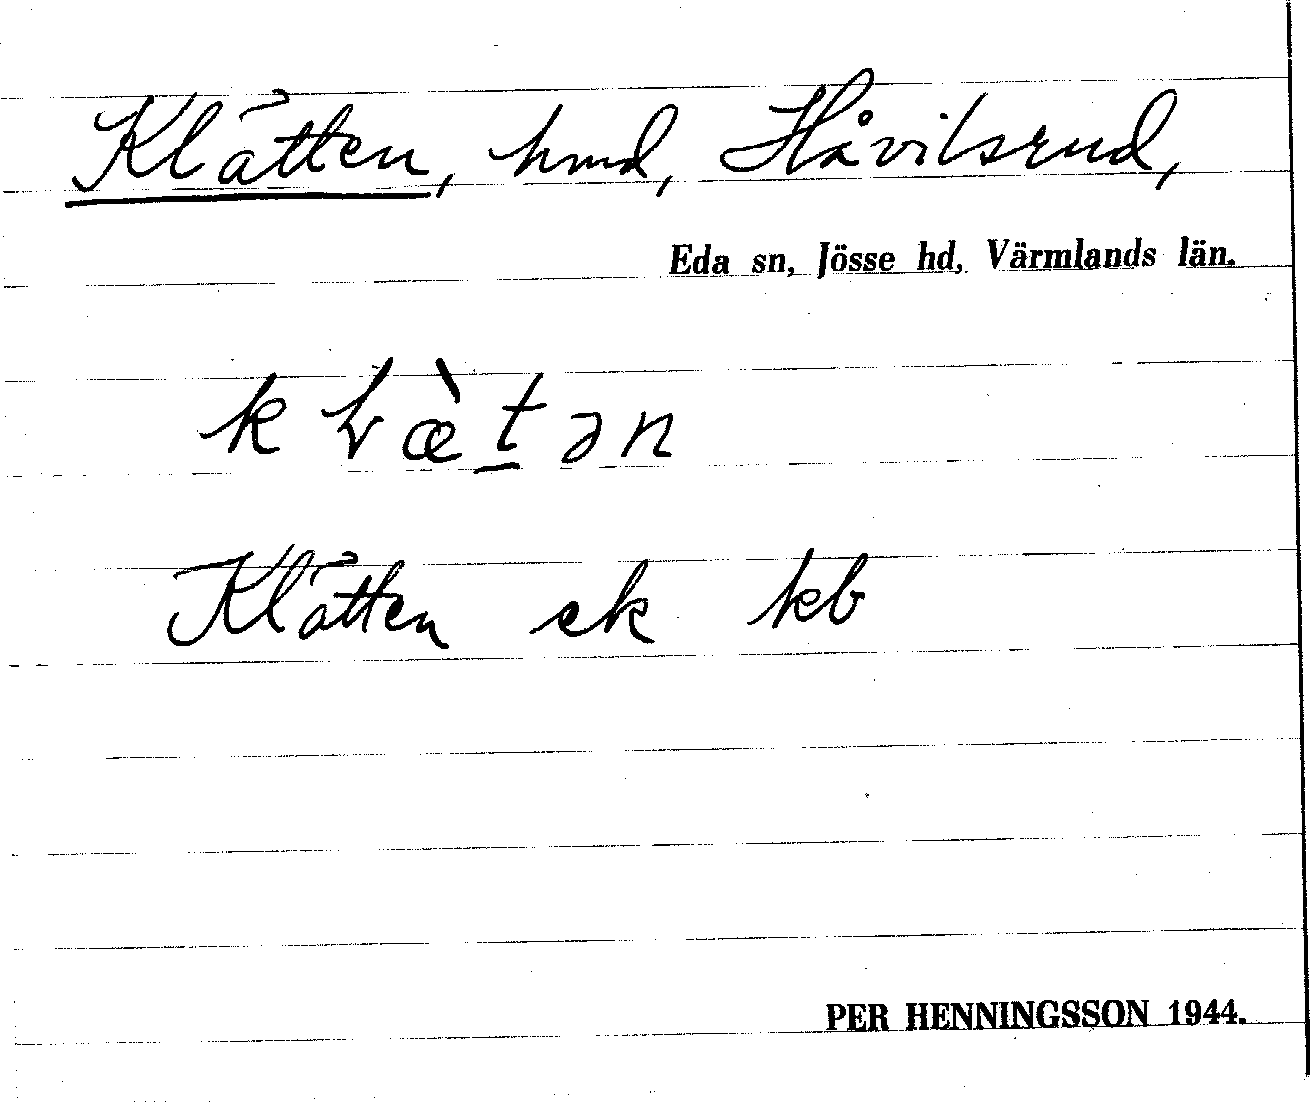 Klätten, hmd, Håvilsrud,
Eda sn, Jösse hd, Värmlands län.
kɽæ̀t̲ən
Klätten ek kb
PER HENNINGSSON 1944.